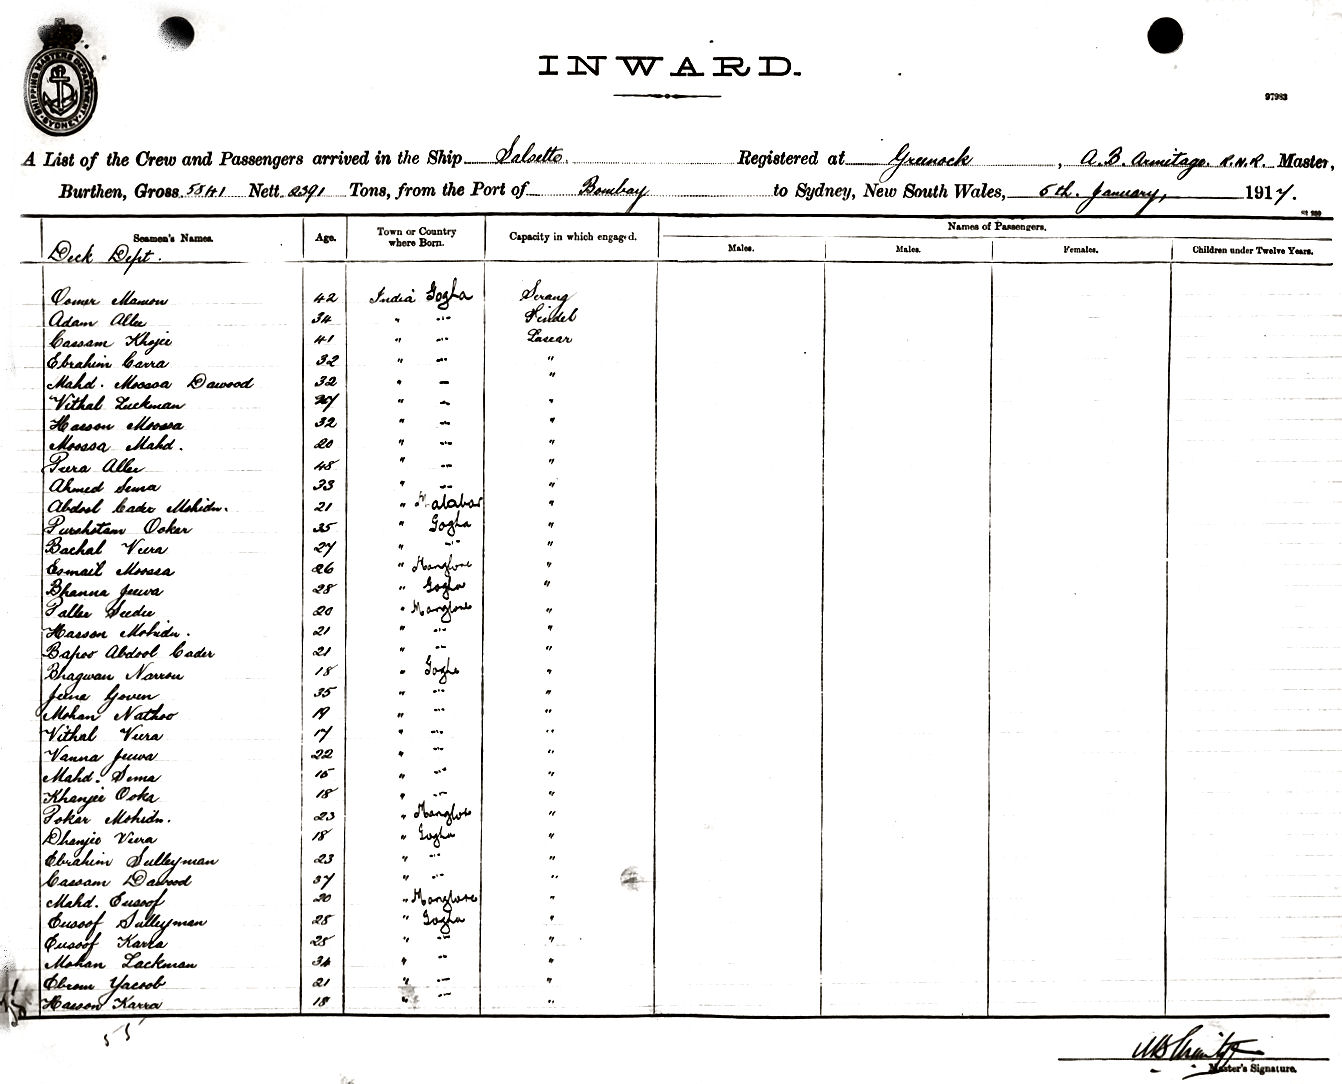 SHIPPING MASTERS DEPARTMENT SYDNEY
INWARD.
97983
A List of the Crew and Passengers arrived in the Ship Salsette. Registered at Greenock, A. B. Armitage. R.N.R. Master,
Burthen, Gross 5841 Nett 2391 Tons, from the Port of Bombay to Sydney, New South Wales, 5th. January, 1917.
Seamen's Names. Age. Town or Country where Born. Capacity in which engaged. Names of Passengers.
Males. Males. Females. Children under Twelve Years.
Deck Dept.
Oomer Mamon 42 India Gogha Serang
Adam Allee 34 " " Tindel
Cassam Khojee 41 " " Lascar
Ebrahim Carra 32 " " "
Mahd. Moossa Dawood 32 " " "
Vithal Luckman " " "
Hasson Moossa 32 " " "
Moossa Mahd. 20 " " "
Peera Allee 48 " " "
Ahmed Sema 33 " " "
Abdool Cader Mohidn. 21 " Malabar "
Purshotam Ooker 35 " Gogha "
Bachal Veera 27 " " "
Esmail Moossa 26 " Manglore "
Bhanna Jeewa 28 " Gogha "
Pallee Seedee 20 " Manglore "
Hasson Mohidn. 21 " " "
Bapoo Abdool Cader 21 " " "
Bhagwan Narron 18 " Gogha "
Jeena Goven 35 " " "
Mohan Nathoo 19 " " "
Vithal Veera 17 " " "
Vanna Jeewa 22 " " "
Mahd. Sema 15 " " "
Khanjee Ooka 18 " " "
Pokar Mohidn. 23 " Manglore "
Dhanjee Veera 18 " Gogha "
Ebrahim Sulleyman 23 " " "
Cassam Dawood 37 " " "
Mahd. Eusoof 20 " Manglore "
Eusoof Sulleyman 28 " Gogha "
Eusoof Karra 25 " " "
Mohan Lackman 34 " " "
Ebrom Yacoob 21 " " "
Hasson Karra 18 " " "
55
Master's Signature.